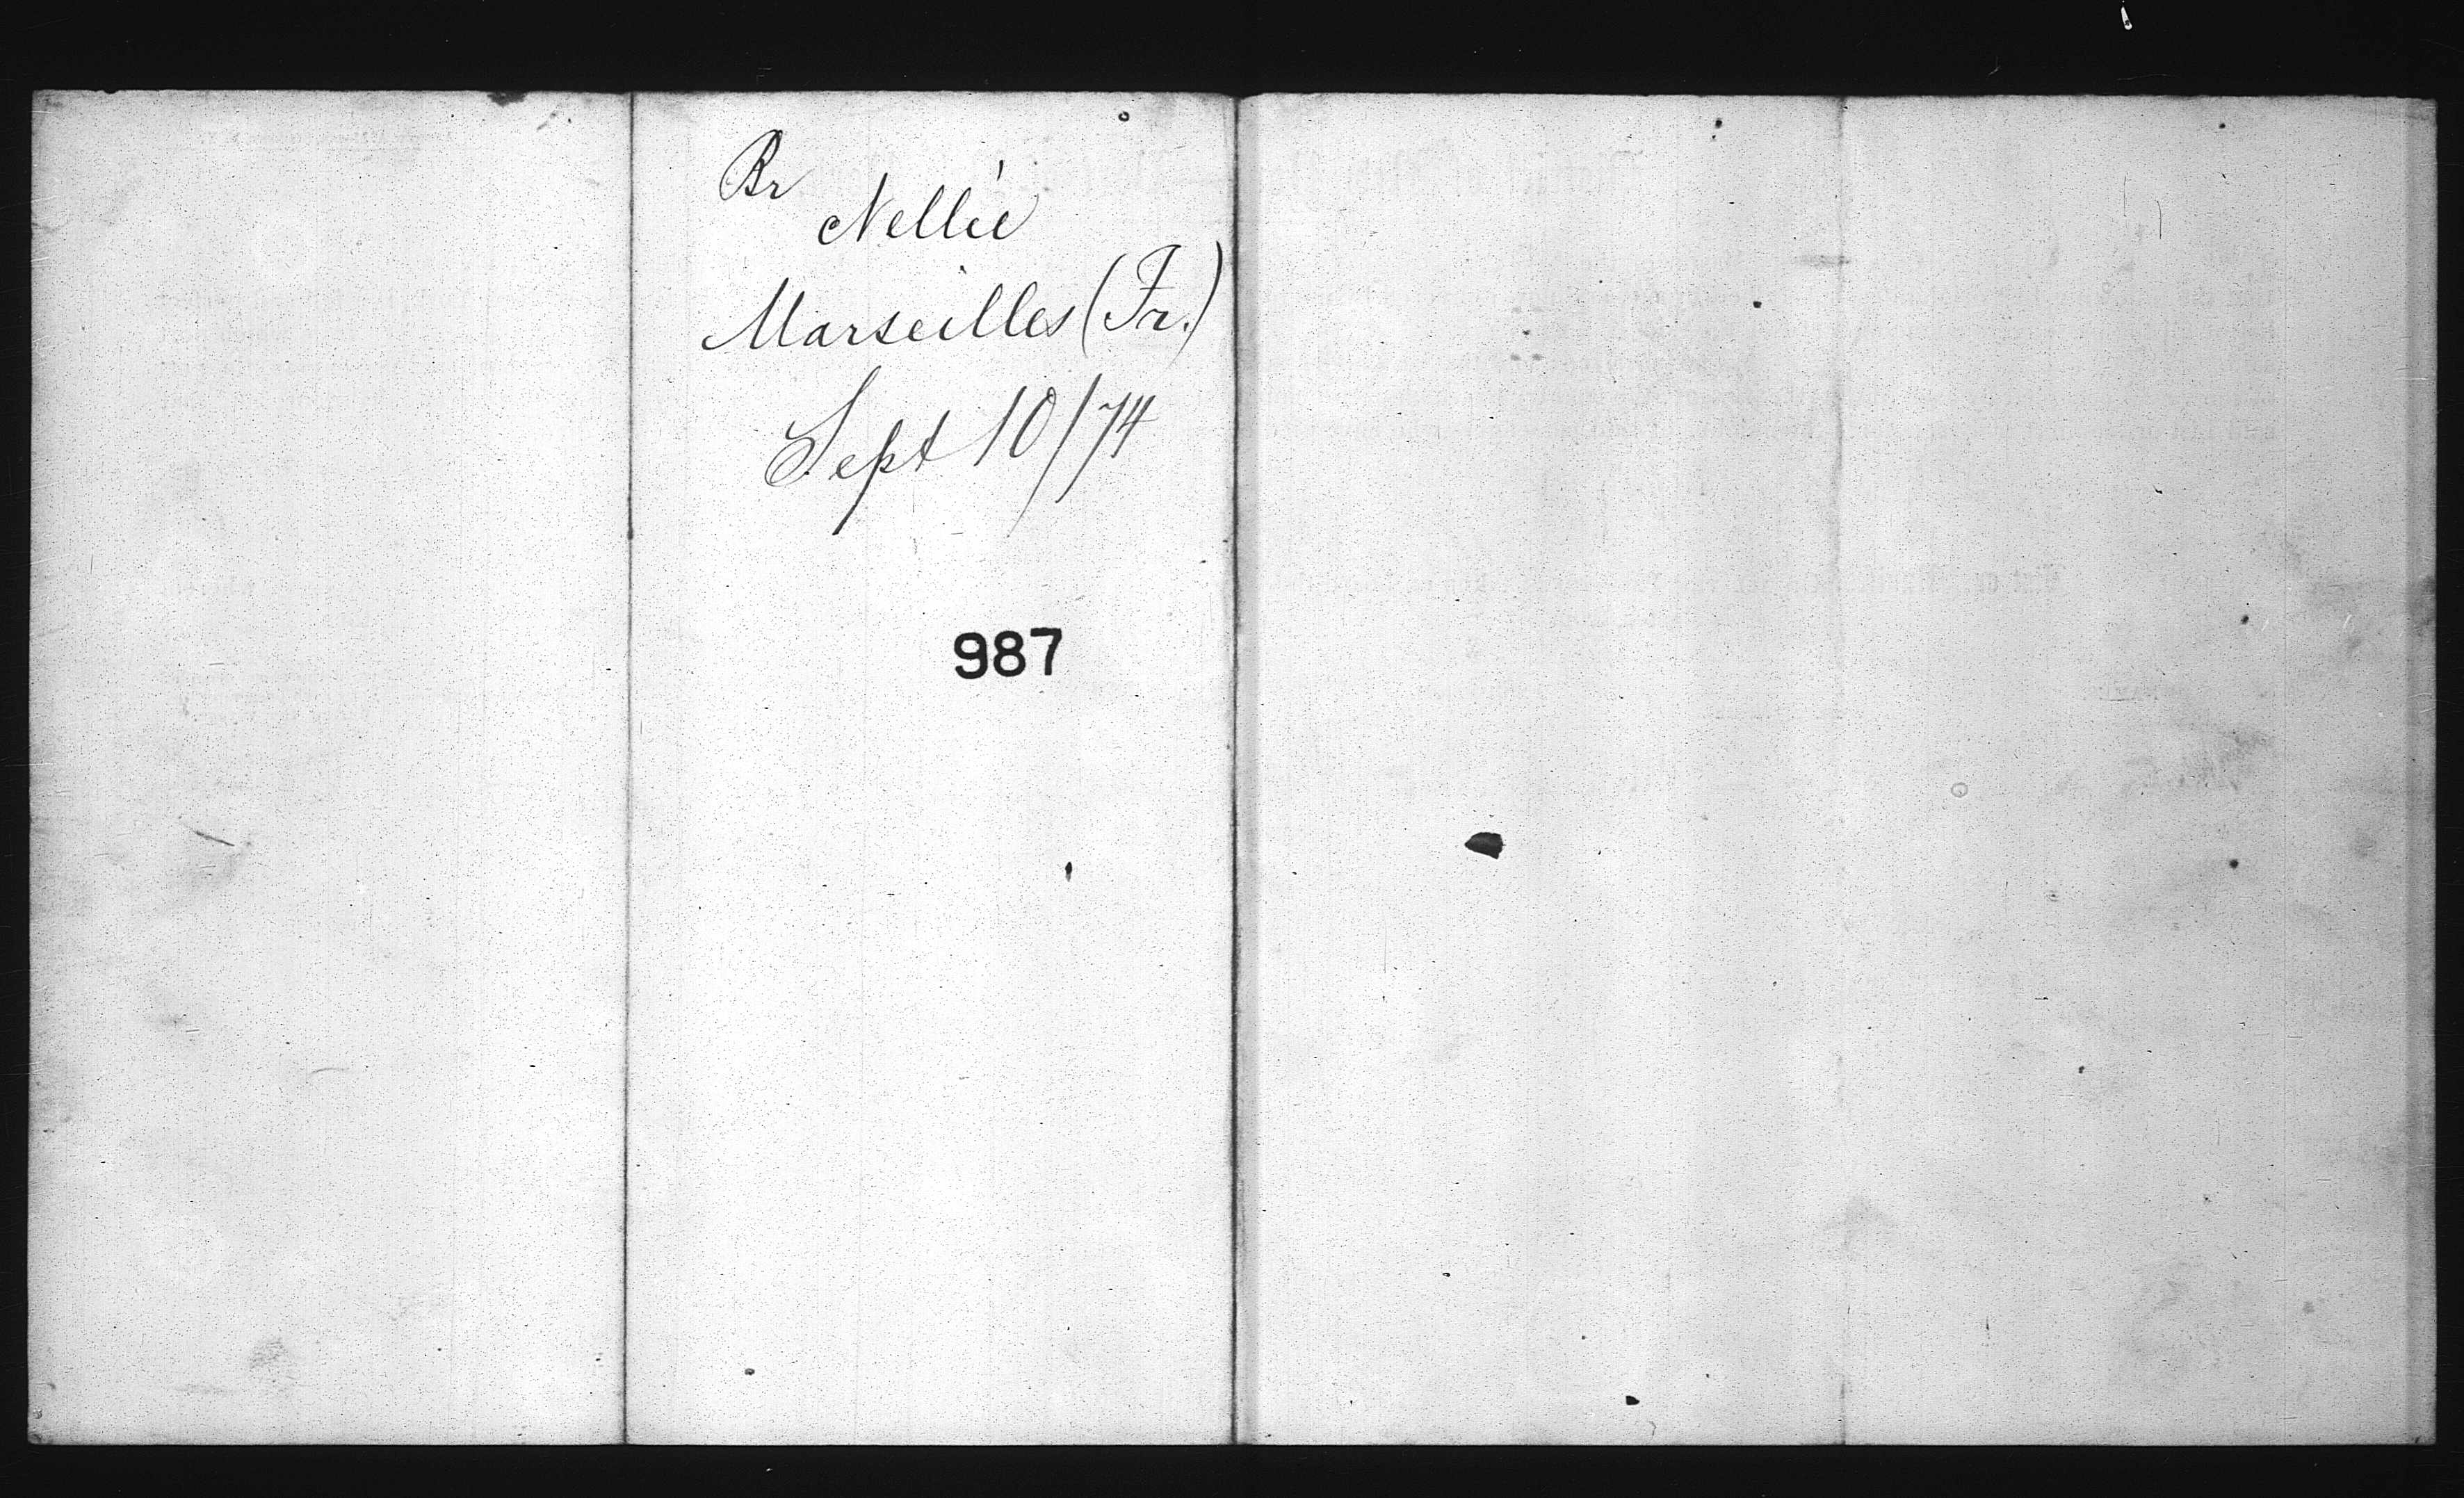 Br
Nellie
Marseilles (Fr.)
Sept 10/74
987